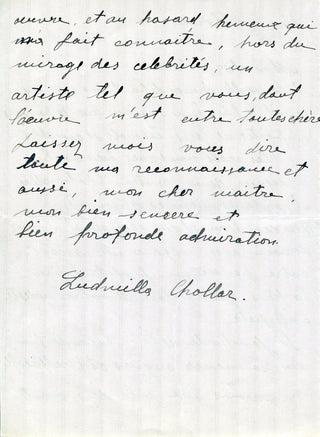 œuvre, et au hasard heureux qui
m'a fait connaitre, hors du
mirage des celebrités, un
artiste tel que vous, dont
l'oeuvre m'est entre toutes chère
Laissez mois vous dire
toute ma reconnaissance et
aussi, mon cher maitre,
mon bien sencere et
bien profonde admiration
Ludmilla Chollar.